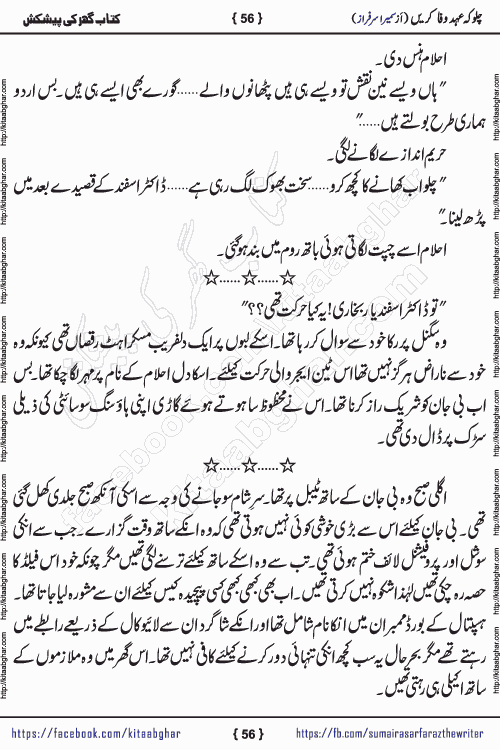 چلو کہ عہد وفا کریں (از سمیرا سرفراز)
{ 56 }
کتاب گھر کی پیشکش
احلام ہنس دی۔
”ہاں ویسے نین نقش تو ویسے ہی ہیں پٹھانوں والے......گورے بھی ایسے ہی ہیں۔بس اردو
ہماری طرح بولتے ہیں......“
حریم اندازے لگانے لگی۔
”چلو اب کھانے کا کچھ کرو......سخت بھوک لگ رہی ہے......ڈاکٹر اسفند کے قصیدے بعد میں
پڑھ لینا۔“
احلام اسے چپت لگاتی ہوئی باتھ روم میں بند ہو گئی۔
☆......☆......☆
”تو ڈاکٹر اسفند یار بخاری! یہ کیا حرکت تھی؟؟“
وہ سگنل پر رکا خود سے سوال کر رہا تھا۔ اسکے لبوں پر ایک دلفریب مسکراہٹ رقصاں تھی کیونکہ وہ
خود سے ناراض ہرگز نہیں تھا اس ٹین ایجر والی حرکت کیلئے۔ اسکا دل احلام کے نام پر مہر لگا چکا تھا۔ بس
اب بی جان کو شریک راز کرنا تھا۔ اس نے محظوظ سا ہوتے ہوئے گاڑی اپنی ہاؤسنگ سوسائٹی کی ذیلی
سڑک پر ڈال دی تھی۔
☆......☆......☆
اگلی صبح وہ بی جان کے ساتھ ٹیبل پر تھا۔ سر شام سو جانے کی وجہ سے اسکی آنکھ صبح جلدی کھل گئی
تھی۔ بی جان کیلئے اس سے بڑی خوشی کوئی نہیں ہوتی تھی کہ وہ انکے ساتھ وقت گزارے۔ جب سے انکی
سوشل اور پروفیشنل لائف ختم ہوئی تھی۔ تب سے وہ اسکے ساتھ کیلئے ترسنے لگی تھیں مگر چونکہ خود اس فیلڈ کا
حصہ رہ چکی تھیں لہٰذا شکوہ نہیں کرتی تھیں۔ اب بھی کبھی کبھی کسی پیچیدہ کیس کیلئے ان سے مشورہ لیا جاتا تھا۔
ہسپتال کے بورڈ ممبران میں انکا نام شامل تھا اور انکے شاگرد ان سے لائیو کال کے ذریعے رابطے میں
رہتے تھے مگر بہر حال یہ سب کچھ انکی تنہائی دور کرنے کیلئے کافی نہیں تھا۔ اس گھر میں وہ ملازموں کے
ساتھ اکیلی ہی رہتی تھیں۔
https://facebook.com/kitaabghar
{ 56 }
https://fb.com/sumairasarfarazthewriter
http://kitaabghar.com
http://kitaabghar.com
http://kitaabghar.com
http://kitaabghar.com
http://kitaabghar.com
http://kitaabghar.com
http://kitaabghar.com
http://kitaabghar.com